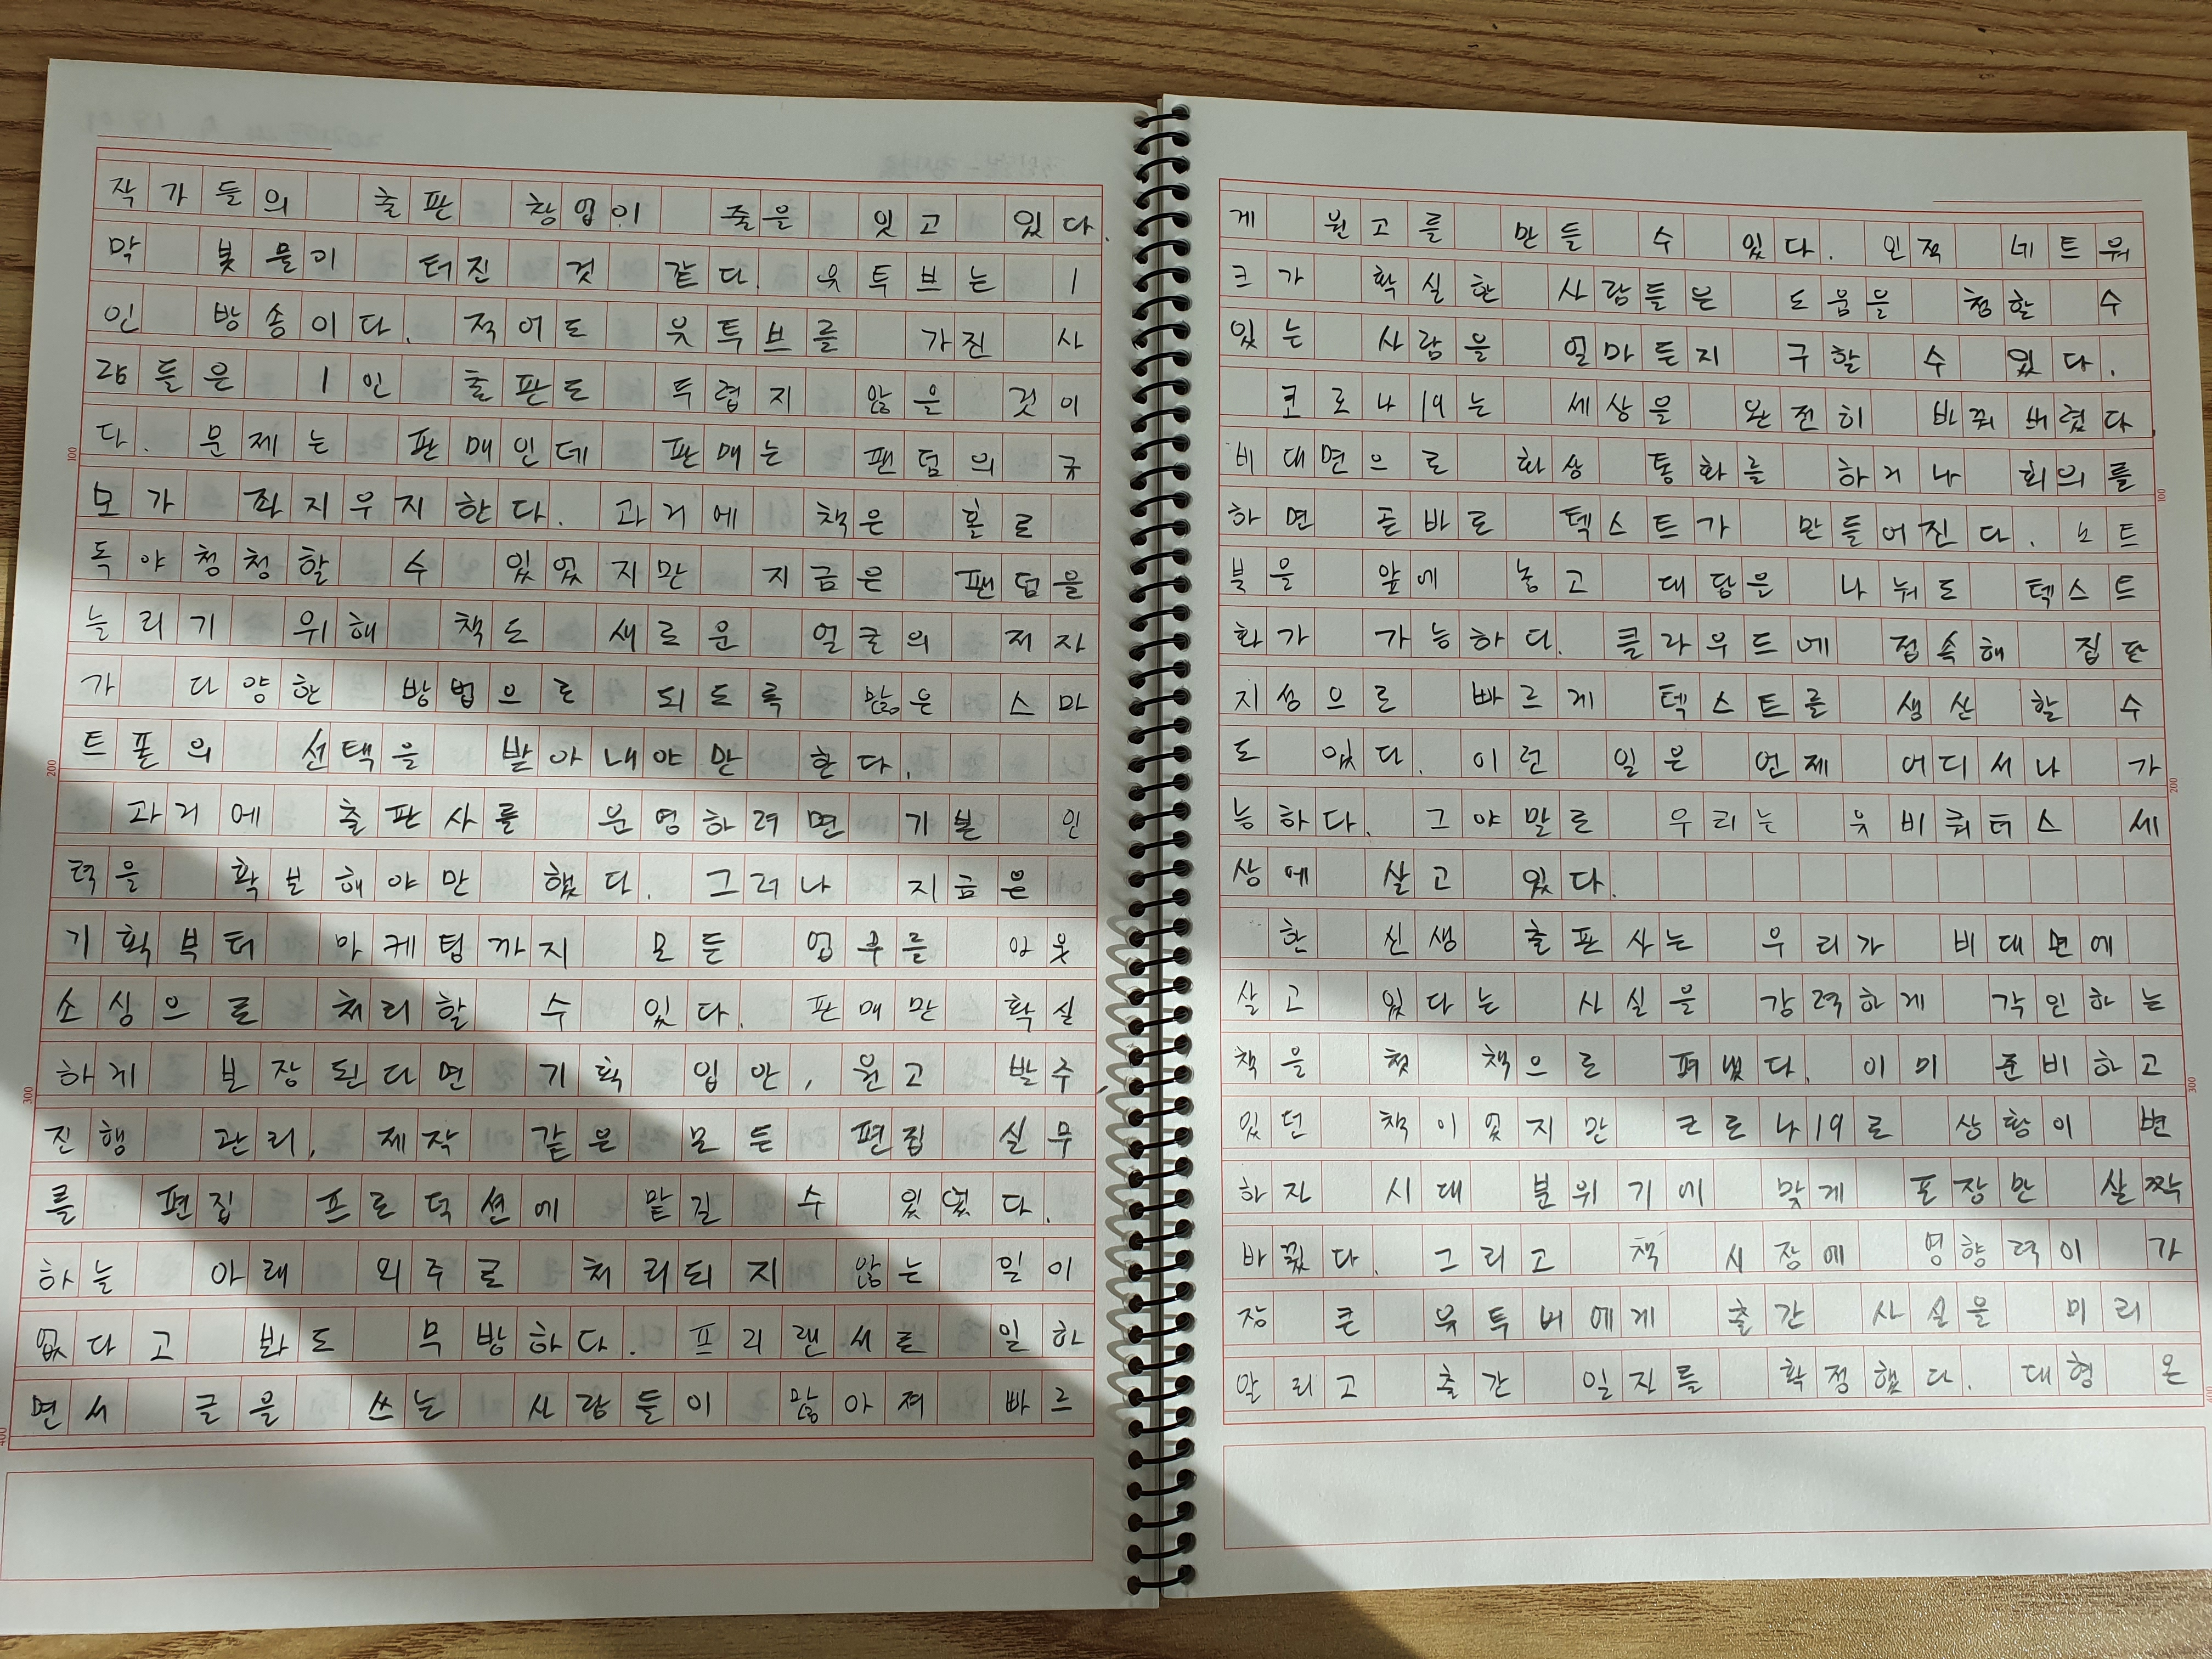 작가들의 출판 창업이 줄을 잇고 있다.
막 봇물이 터진 것 같다. 유투브는 1
인 방송이다. 적어도 유투브를 가진 사
람들은 1인 출판도 두렵지 않을 것이
다. 문제는 판매인데 판매는 팬덤의 규
모가 좌지우지한다. 과거에 책은 홀로
독야청청할 수 있었지만 지금은 팬덤을
늘리기 위해 책도 새로운 얼굴의 저자
가 다양한 방법으로 되도록 많은 스마
트폰의 선택을 받아내야만 한다.
과거에 출판사를 운영하려면 기본 인
력을 확보해야만 했다. 그러나 지금은
기획부터 마케팅까지 모든 업무를 아웃
소싱으로 처리할 수 있다. 판매만 확실
하게 보장된다면 기획 입안, 원고 발주,
진행 관리, 제작 같은 모든 편집 실무
를 편집 프로덕션에 맡길 수 있었다.
하늘 아래 외주로 처리되지 않는 일이
없다고 봐도 무방하다. 프리랜서로 일하
면서 글을 쓰는 사람들이 많아져 빠르
게 원고를 만들 수 있다. 인적 네트워
크가 확실한 사람들은 도움을 청할 수
있는 사람을 얼마든지 구할 수 있다.
코로나19는 세상을 완전히 바꿔버렸다.
비대면으로 화상 통화를 하거나 회의를
하면 곧바로 텍스트가 만들어진다. 노트
북을 앞에 놓고 대담은 나눠도 텍스트
화가 가능하다. 클라우드에 접속해 집단
지성으로 빠르게 텍스트를 생산 할 수
도 있다. 이런 일은 언제 어디서나 가
능하다. 그야말로 우리는 유비쿼터스 세
상에 살고 있다.
한 신생 출판사는 우리가 비대면에
살고 있다는 사실을 강력하게 각인하는
책을 첫 책으로 펴냈다. 이미 준비하고
있던 책이었지만 코로나19로 상황이 변
하자 시대 분위기에 맞게 포장만 살짝
바꿨다. 그리고 책 시장에 영향력이 가
장 큰 유투버에게 출간 사실을 미리
알리고 출간 일자를 확정했다. 대형 온